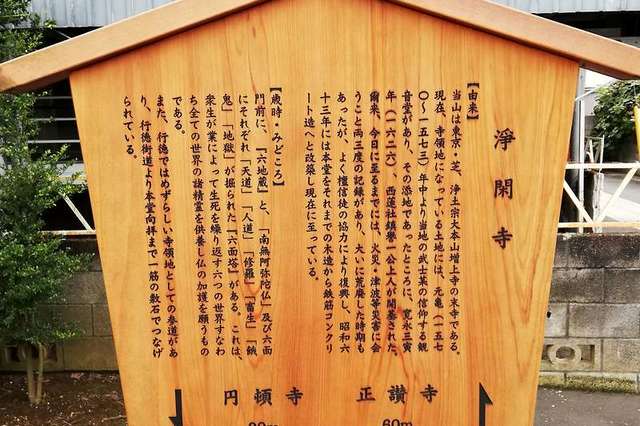 淨閑寺
【由来】
当山は東京・芝、浄土宗大本山増上寺の末寺である。
現在、寺領地になっている土地には、元亀(一五七
〇〜一五七三)年中より当地の武士某の信仰する観
音堂があり、その添地であったところに、寛永三寅
年(一六二六)、西蓮社鎮誉一公上人が開基された。
爾来、今日に至るまでには、火災・津波等災害に会
うこと両三度の記録があり、大いに荒廃した時期も
あったが、よく檀信徒の協力により復興し、昭和六
十三年には本堂をそれまでの木造から鉄筋コンクリ
ート造へと改築し現在に至っている。
【歳時・みどころ】
門前に、『六地蔵』と、「南無阿弥陀仏」及び六面
にそれぞれ「天道」「人道」「修羅」「畜生」「餓
鬼」「地獄」が掘られた『六面塔』がある。これは、
衆生が業によって生死を繰り返す六つの世界すなわ
ち全ての世界の諸精霊を供養し仏の加護を願うもの
である。
また、行徳ではめずらしい寺領地としての参道があ
り、行徳街道より本堂向拝まで一筋の敷石でつなげ
られている。
正讃寺
60m
円頓寺